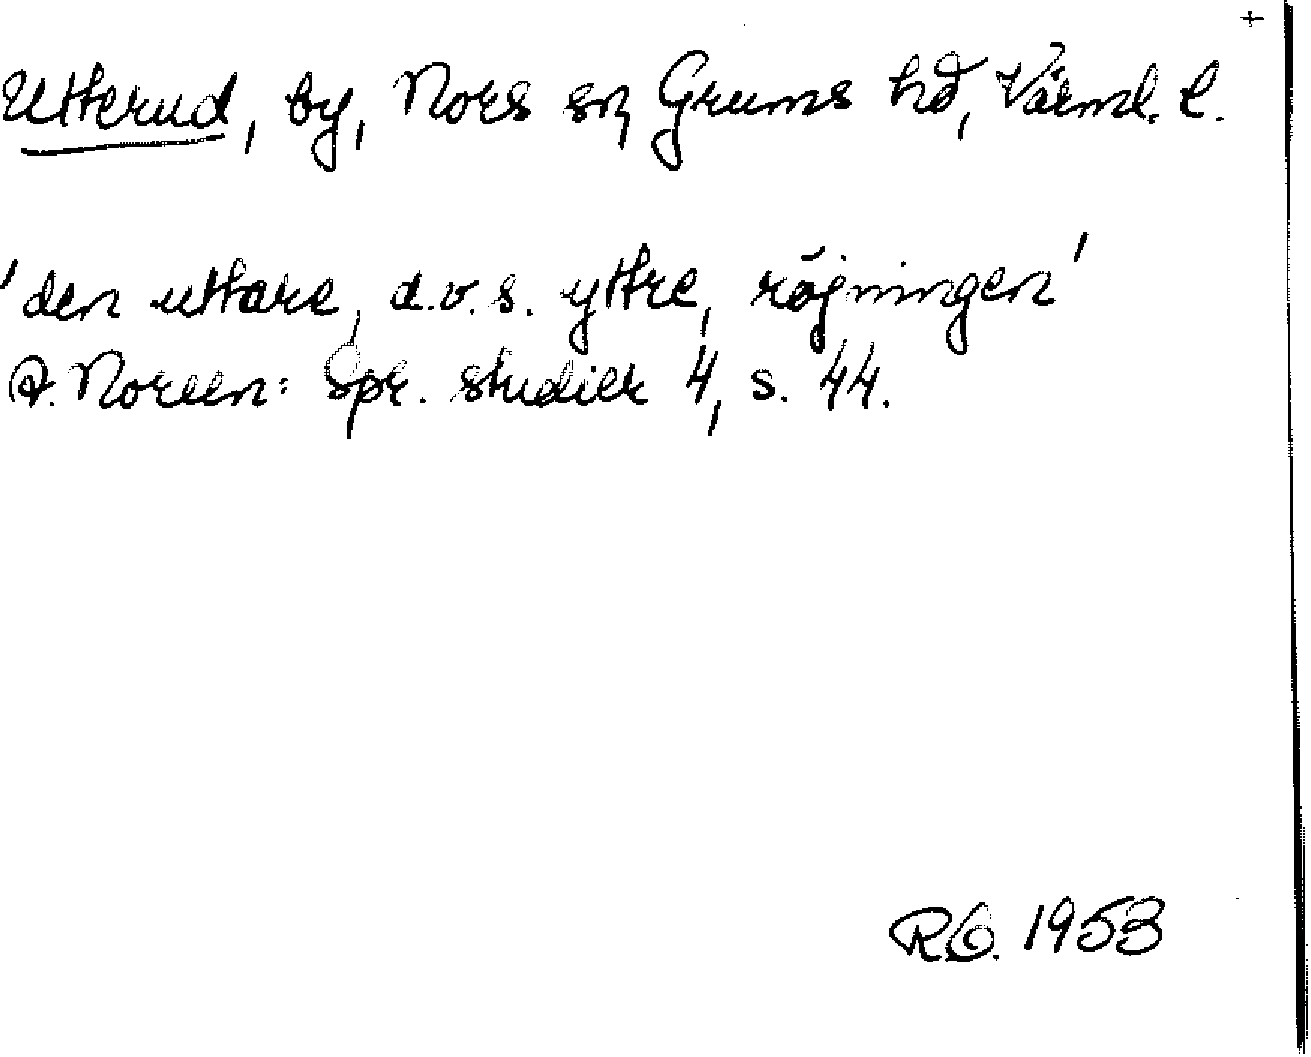 +
Utterud, by, Nors sn, Grums hd, Värml. l.
'den uttare, d.v.s. yttre, röjningen'
A. Noreen: Spr. studier 4, s. 44.
1953